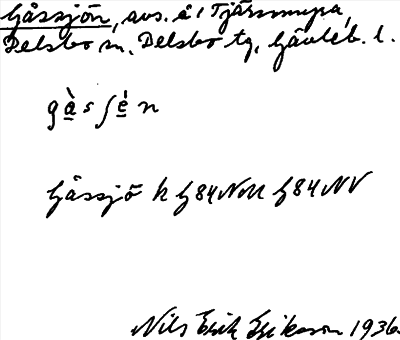 Gåssjön, avs. å i Tjärnmyra,
Delsbo sn, Delsbo tg, Gävleb. l.
gàsʃèn
Gåssjö k G84NV
Nils Erik Eriksson 1936